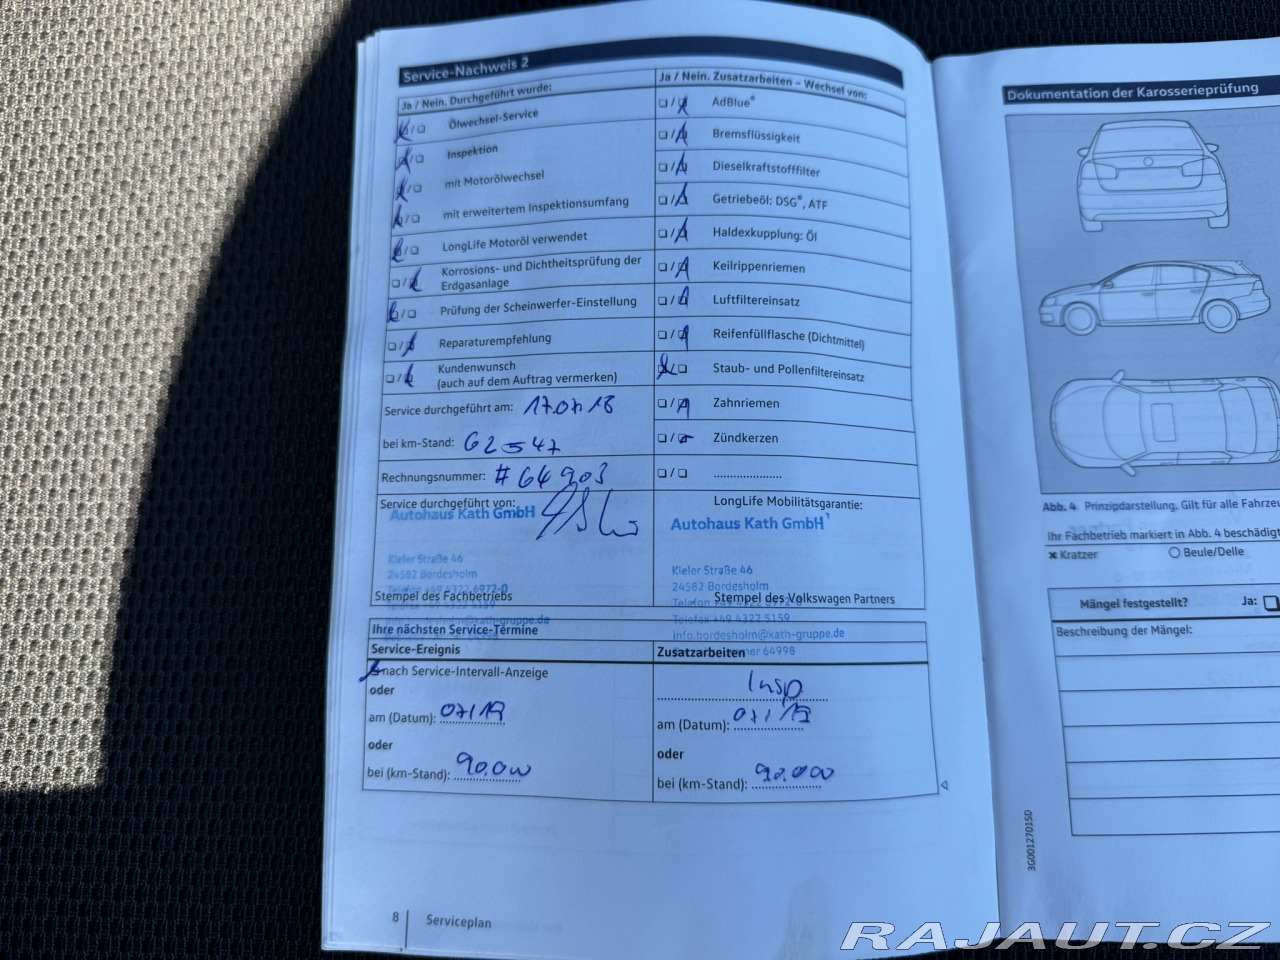 Service-Nachweis 2
Ja / Nein. Durchgeführt wurde:
Ölwechsel-Service
Inspektion
mit Motorölwechsel
mit erweitertem Inspektionsumfang
LongLife Motoröl verwendet
Korrosions- und Dichtheitsprüfung der
Erdgasanlage
Prüfung der Scheinwerfer-Einstellung
Reparaturempfehlung
Kundenwunsch
(auch auf dem Auftrag vermerken)
Service durchgeführt am: 17.07.18
bei km-Stand: 62547
Rechnungsnummer: #64903
Service durchgeführt von:
Autohaus Kath GmbH
Kieler Straße 46
24582 Bordesholm
Telefon +49 4322 6972-0
Stempel des Fachbetriebs
Ja / Nein. Zusatzarbeiten – Wechsel von:
AdBlue®
Bremsflüssigkeit
Dieselkraftstofffilter
Getriebeöl: DSG®, ATF
Haldexkupplung: Öl
Keilrippenriemen
Luftfiltereinsatz
Reifenfüllflasche (Dichtmittel)
Staub- und Pollenfiltereinsatz
Zahnriemen
Zündkerzen
LongLife Mobilitätsgarantie:
Autohaus Kath GmbH
Kieler Straße 46
24582 Bordesholm
Stempel des Volkswagen Partners
Telefax +49 4322 5159
info.bordesholm@kath-gruppe.de
64998
Ihre nächsten Service-Termine
Service-Ereignis
nach Service-Intervall-Anzeige
oder
am (Datum): 07/19
oder
bei (km-Stand): 90.000
Zusatzarbeiten
Insp.
am (Datum): 07/19
oder
bei (km-Stand): 90.000
8 Serviceplan
Dokumentation der Karosserieprüfung
Abb. 4 Prinzipdarstellung. Gilt für alle
Ihr Fachbetrieb markiert in Abb. 4
Kratzer
Beule/Delle
Mängel festgestellt? Ja:
Beschreibung der Mängel:
3G0012701SD
RAJAUT.CZ